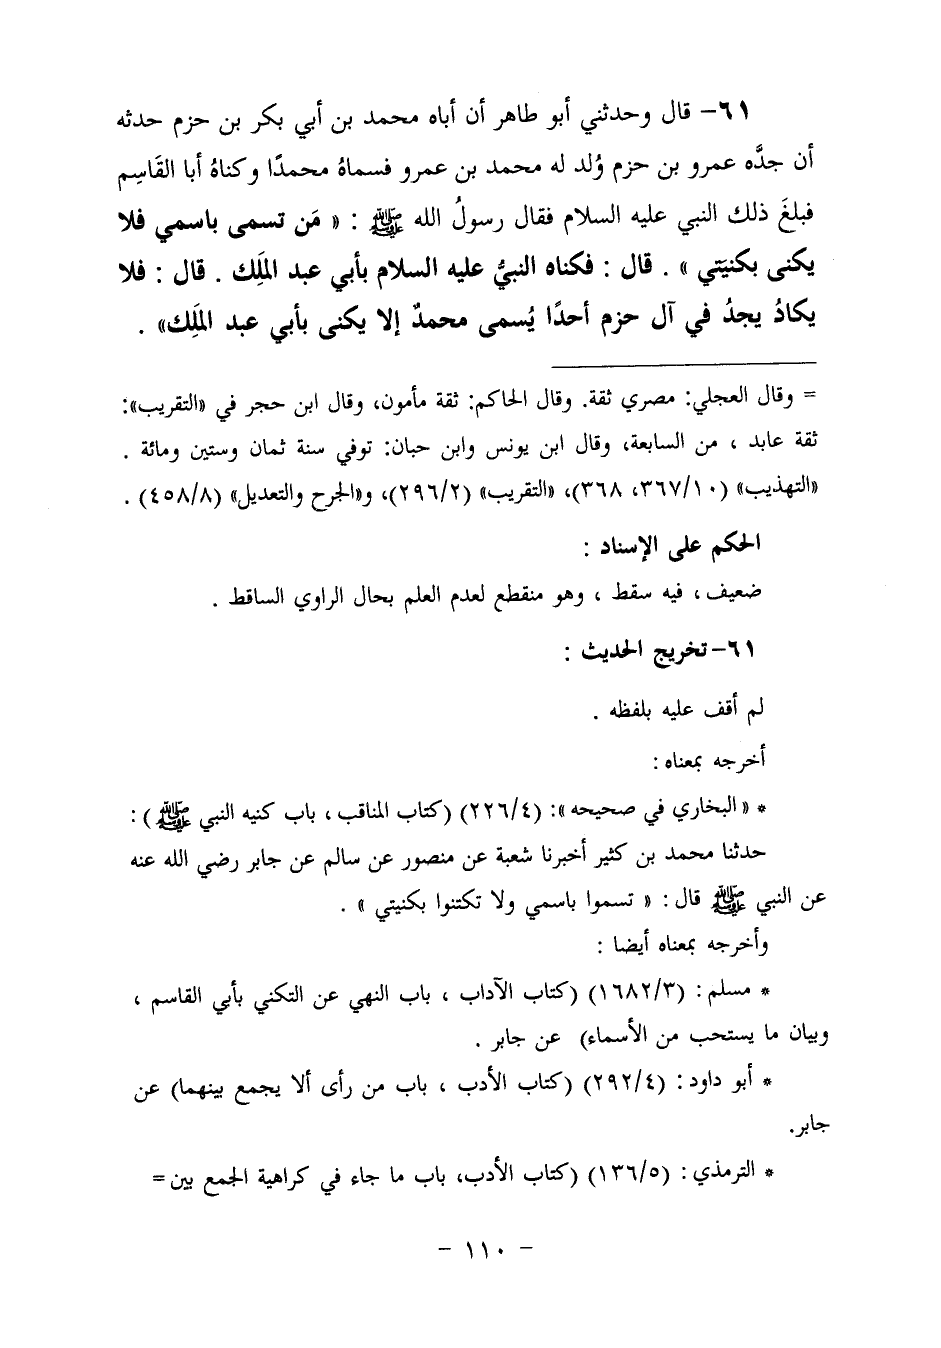 ٦١- قال وحدثني أبو طاهر أن أباه محمد بن أبي بكر بن حزم حدثه
أن جدَّه عمرو بن حزم وُلد له محمد بن عمرو فسماهُ محمدًا وكناهُ أبا القَاسِم
فبلغَ ذلك النبي عليه السلام فقال رسولُ الله ﷺ : « مَن تسمى باسمي فلا
يكنى بكنيَتي » . قال : فكناه النبيُّ عليه السلام بأبي عبد الملَِك . قال : فلا
يكادُ يجدُ في آل حزم أحدًا يُسمى محمدٌ إلا يكنى بأبي عبد الملَِك» .
= وقال العجلي: مصري ثقة. وقال الحاكم: ثقة مأمون، وقال ابن حجر في «التقريب»:
ثقة عابد ، من السابعة، وقال ابن يونس وابن حبان: توفي سنة ثمان وستين ومائة .
«التهذيب» (٣٦٧/١٠، ٣٦٨)، «التقريب» (٢٩٦/٢)، و«الجرح والتعديل» (٤٥٨/٨) .
الحكم على الإسناد :
ضعيف ، فيه سقط ، وهو منقطع لعدم العلم بحال الراوي الساقط .
٦١- تخريج الحديث :
لم أقف عليه بلفظه .
أخرجه بمعناه :
* « البخاري في صحيحه »: (٢٢٦/٤) (كتاب المناقب ، باب كنيه النبي ﷺ ) :
حدثنا محمد بن كثير أخبرنا شعبة عن منصور عن سالم عن جابر رضي الله عنه
عن النبي ﷺ قال : « تسموا باسمي ولا تكتنوا بكنيتي » .
وأخرجه بمعناه أيضا :
* مسلم : (١٦٨٢/٣) (كتاب الآداب ، باب النهي عن التكني بأبي القاسم ،
وبيان ما يستحب من الأسماء) عن جابر .
* أبو داود : (٢٩٢/٤) (كتاب الأدب ، باب من رأى ألا يجمع بينهما) عن
جابر.
* الترمذي : (١٣٦/٥) (كتاب الأدب، باب ما جاء في كراهية الجمع بين =
- ١١٠ -